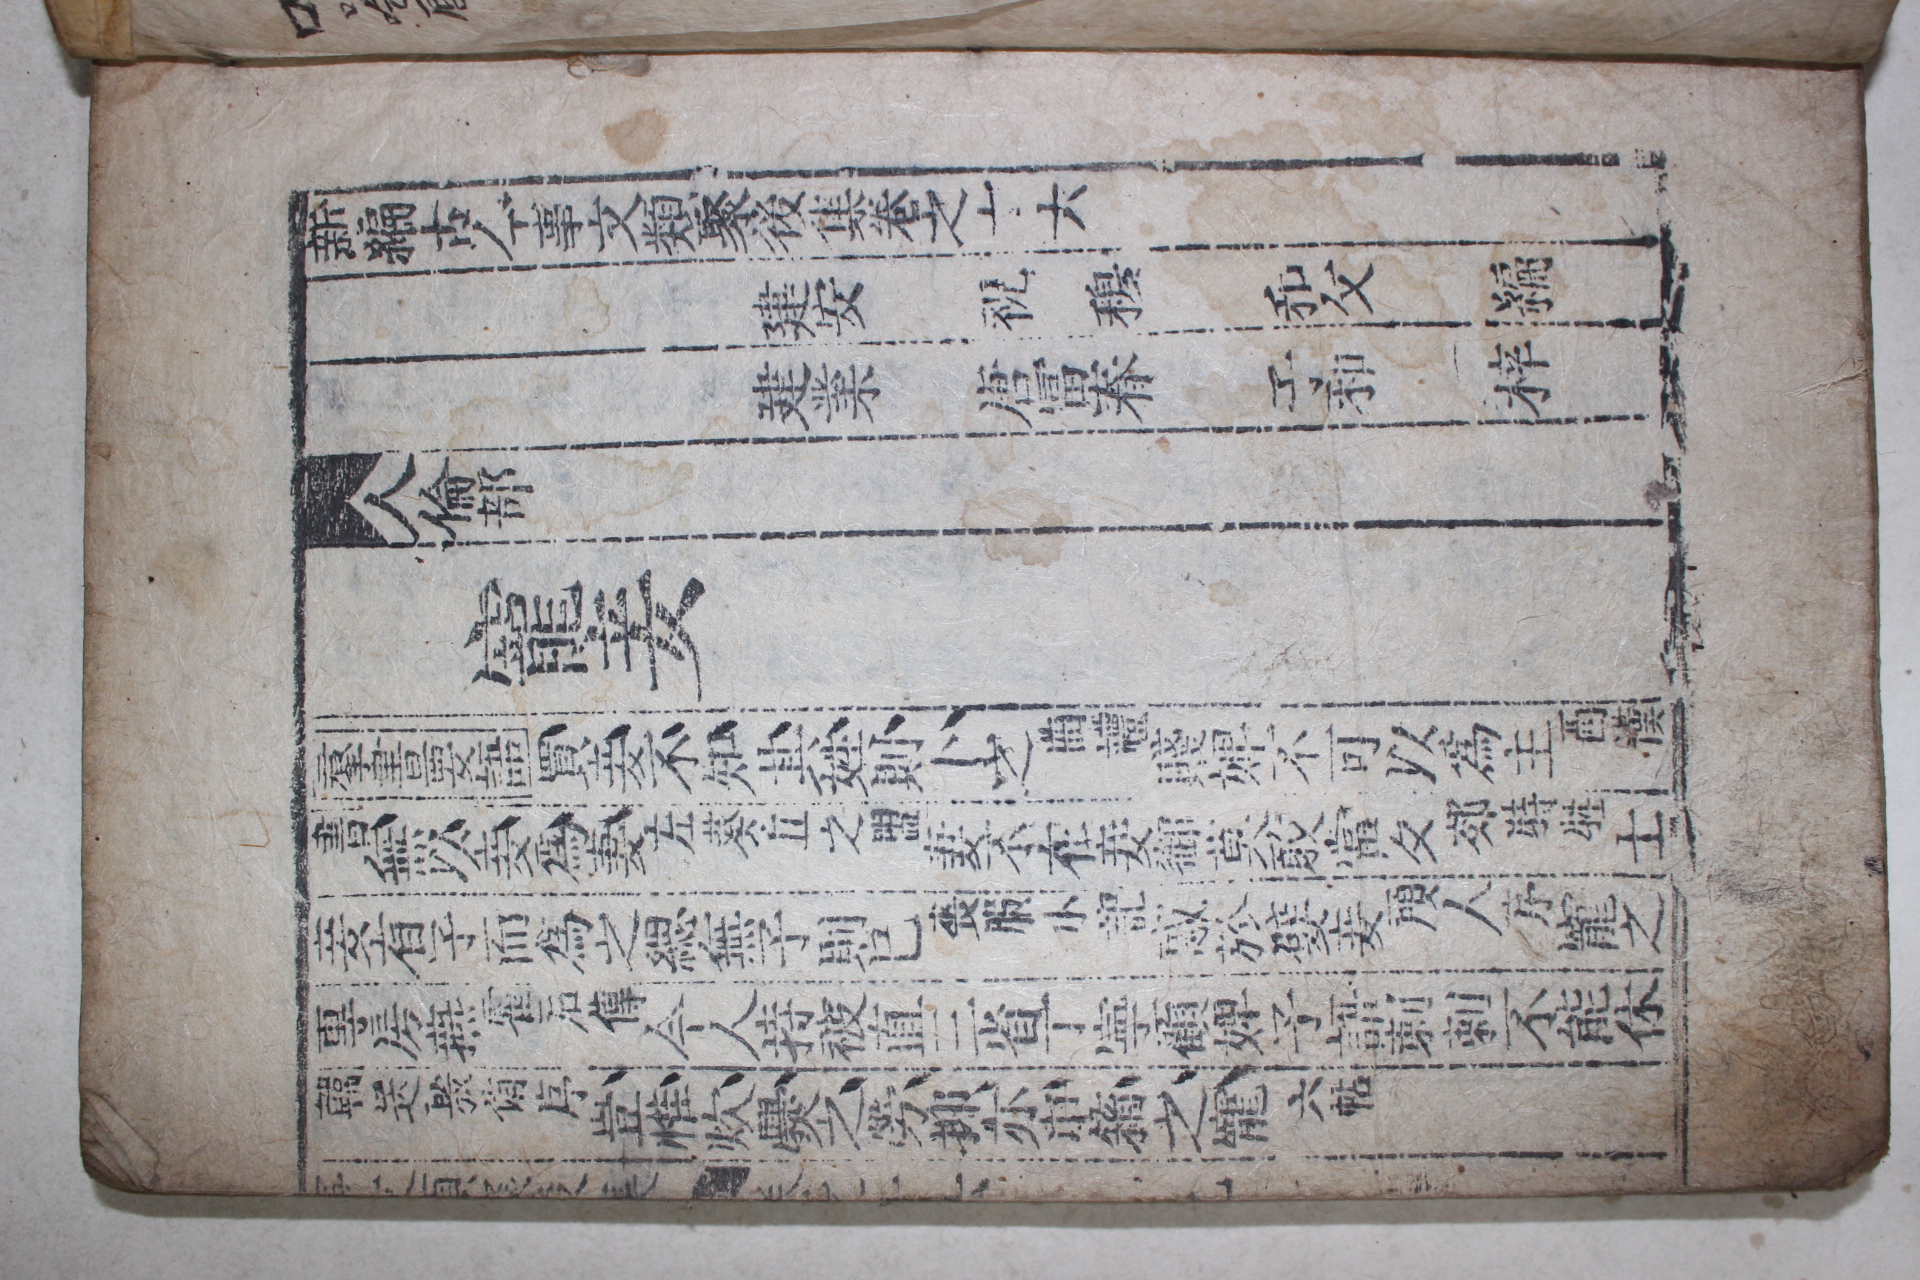 新編古今事文類聚後集卷之十六
建安 祝穆 和父 編
建業 唐富春 子和 梓
人倫部
寵妾
羣書要語買妾不知其姓則卜之曲禮賤婢不可以為主西漢
書無以妾爲妻左葵丘之盟妻不在妾御莫敢當夕郊特牲士
妾有子而為之緦無子則已喪服小記惑於嬖妾碩人序寵之
專房燕霍后傳今人持被直三省丁寧顧婢子語刺刺不能休
韓送殷侑序豈惟炊爨之勞抑亦巾箱之寵六帖